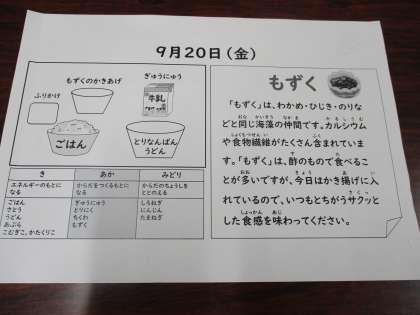 9月20日(金)
ふりかけ
もずくのかきあげ
ぎゅうにゅう
牛乳
ごはん
とりなんばん
うどん
き
あか
みどり
エネルギーのもとに
なる
からだをつくるもとに
なる
からだのちょうしを
ととのえる
ごはん
さとう
うどん
あぶら
こむぎこ、かたくりこ
ぎゅうにゅう
とりにく
ちくわ
もずく
しろねぎ
にんじん
たまねぎ
もずく
「もずく」は、わかめ・ひじき・のりな
どと同じ海藻の仲間です。カルシウム
や食物繊維がたくさん含まれていま
す。「もずく」は、酢のもので食べるこ
とが多いですが、今日はかき揚げに入
れているので、いつもとちがうサクッと
した食感を味わってください。